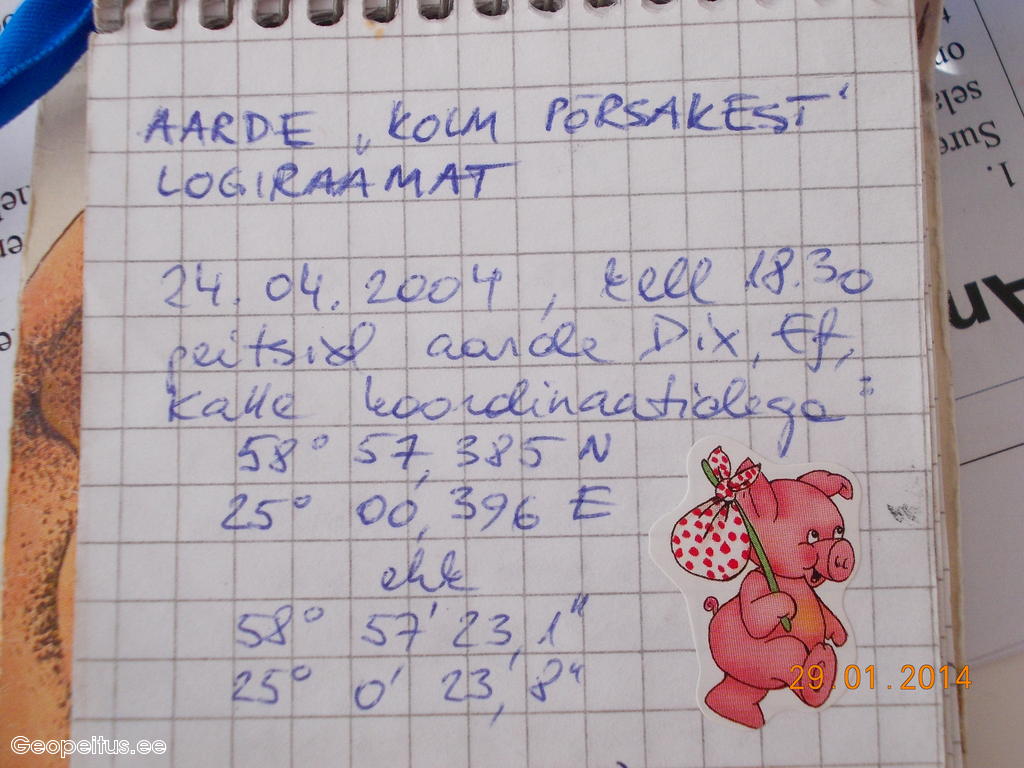 AARDE „KOLM PÕRSAKEST"
LOGIRAAMAT
24.04.2004, kell 18.30
peitsid aarde Dix, Ef,
Kalle koordinaatidega:
58° 57,385 N
25° 00,396 E
ehk
58° 57' 23,1"
25° 0' 23,8"
29.01.2014
Geopeitus.ee
1. Sure
sela